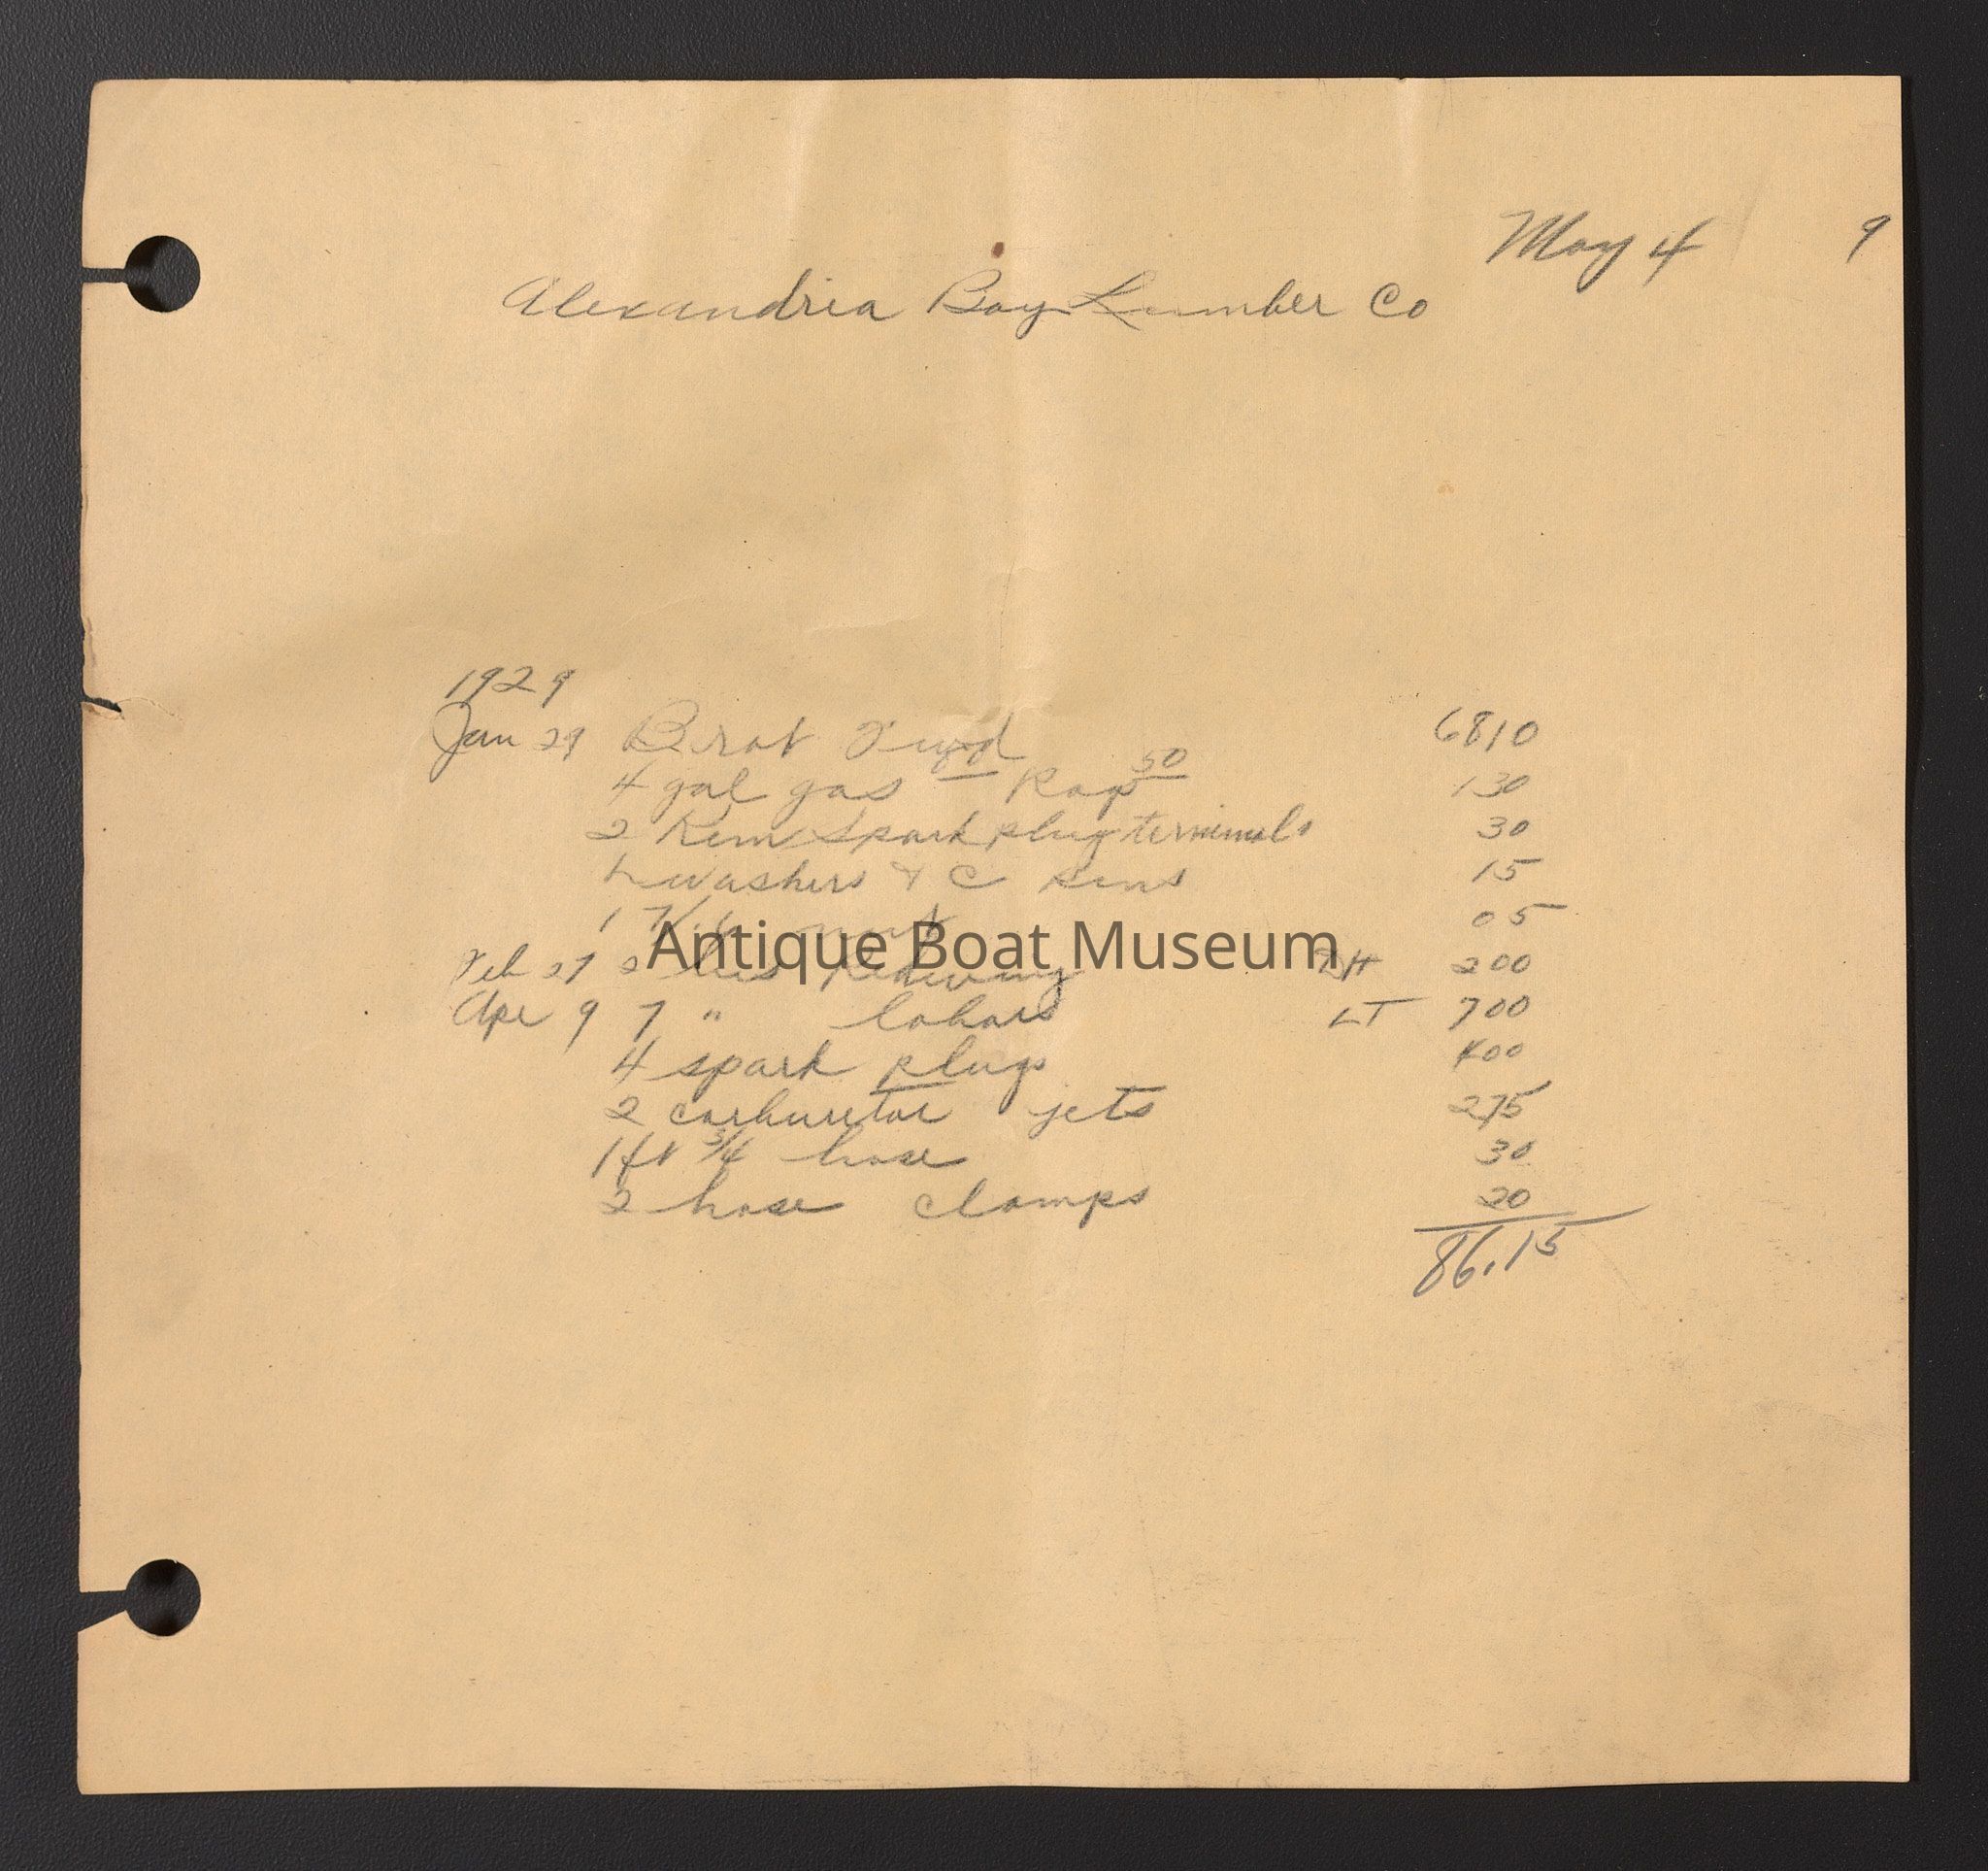 May 4 9
Alexandria Bay Lumber Co
1929
Jan 29 Brot Fwd 6810
4 gal gas 80 Rap 50 130
2 Rem Spark plug terminals 30
washers & C Pins 15
1 7/16 nut 05
Antique Boat Museum
Feb 27 2 hrs 200
Apr 9 7 " labour LT 700
4 spark plugs 400
2 carburetor jets 275
1 ft 3/4 hose 30
2 hose clamps 20
86.15